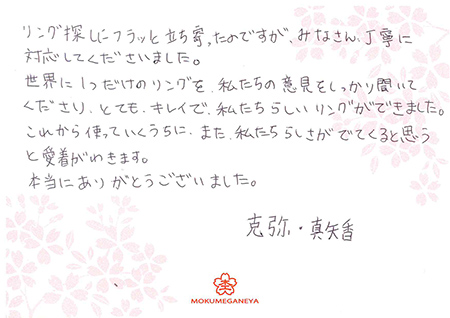 リング探しにフラッと立ち寄ったのですが、みなさん、丁寧に
対応してくださいました。
世界に1つだけのリングを、私たちの意見をしっかり聞いて
くださり、とても、キレイで、私たちらしいリングができました。
これから使っていくうちに、また、私たちらしさがでてくると思う
と愛着がわきます。
本当にありがとうございました。
克弥・真矢香
MOKUMEGANEYA